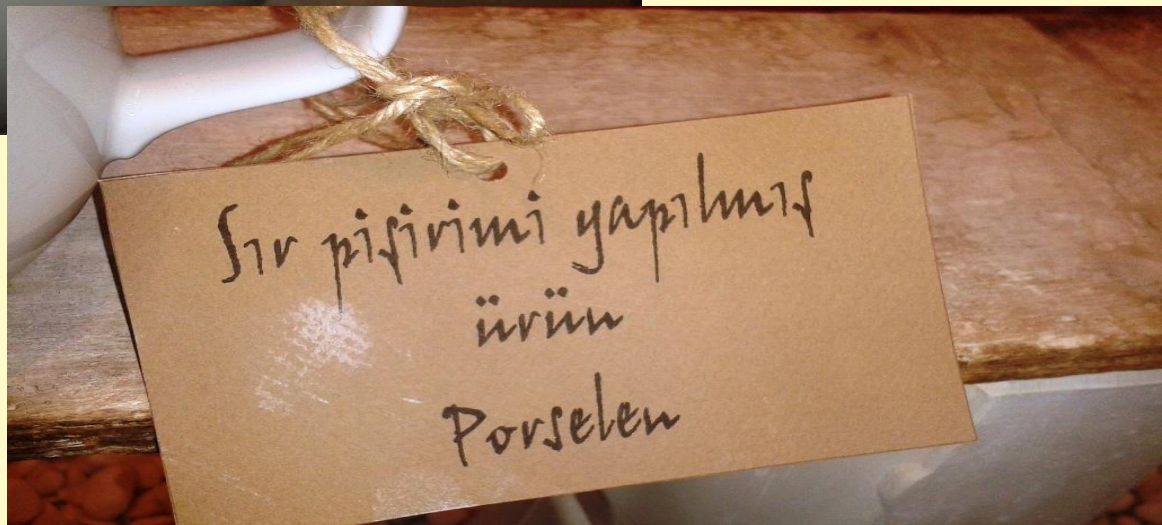 Sır pişirimi yapılmış
ürün
Porselen